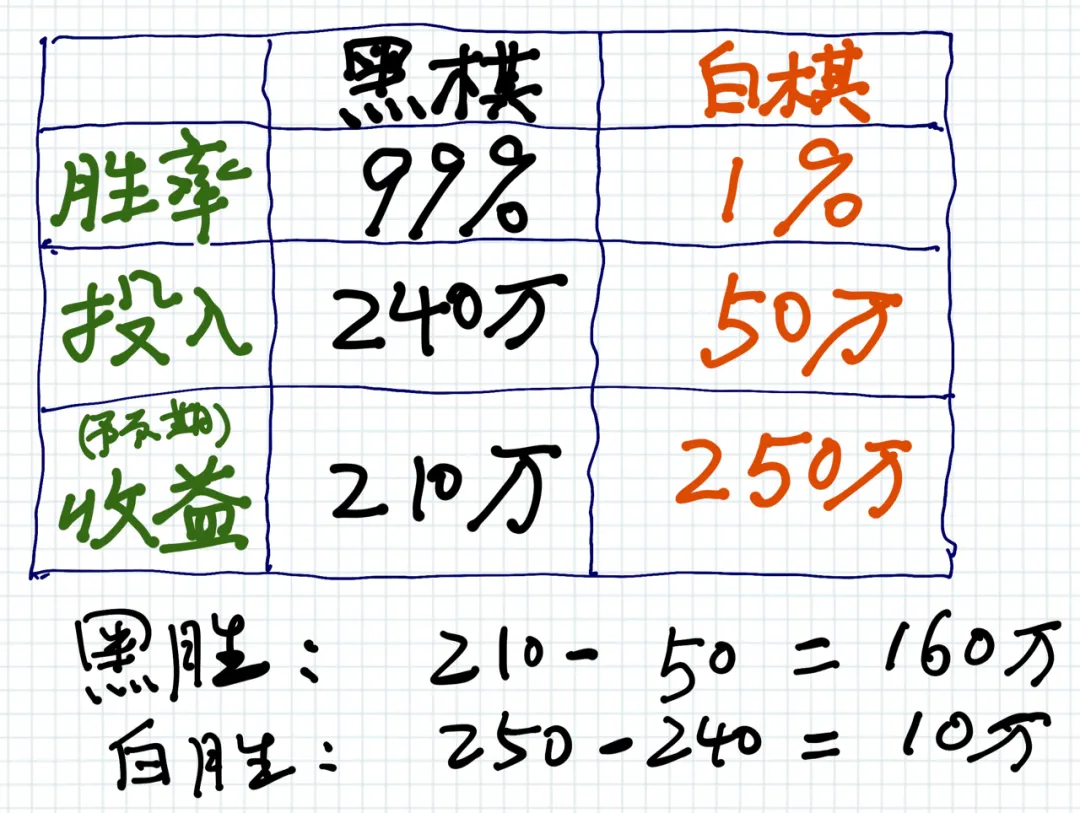 黑棋 白棋
胜率 99% 1%
投入 240万 50万
(预期)
收益 210万 250万
黑胜: 210 - 50 = 160万
白胜: 250 - 240 = 10万